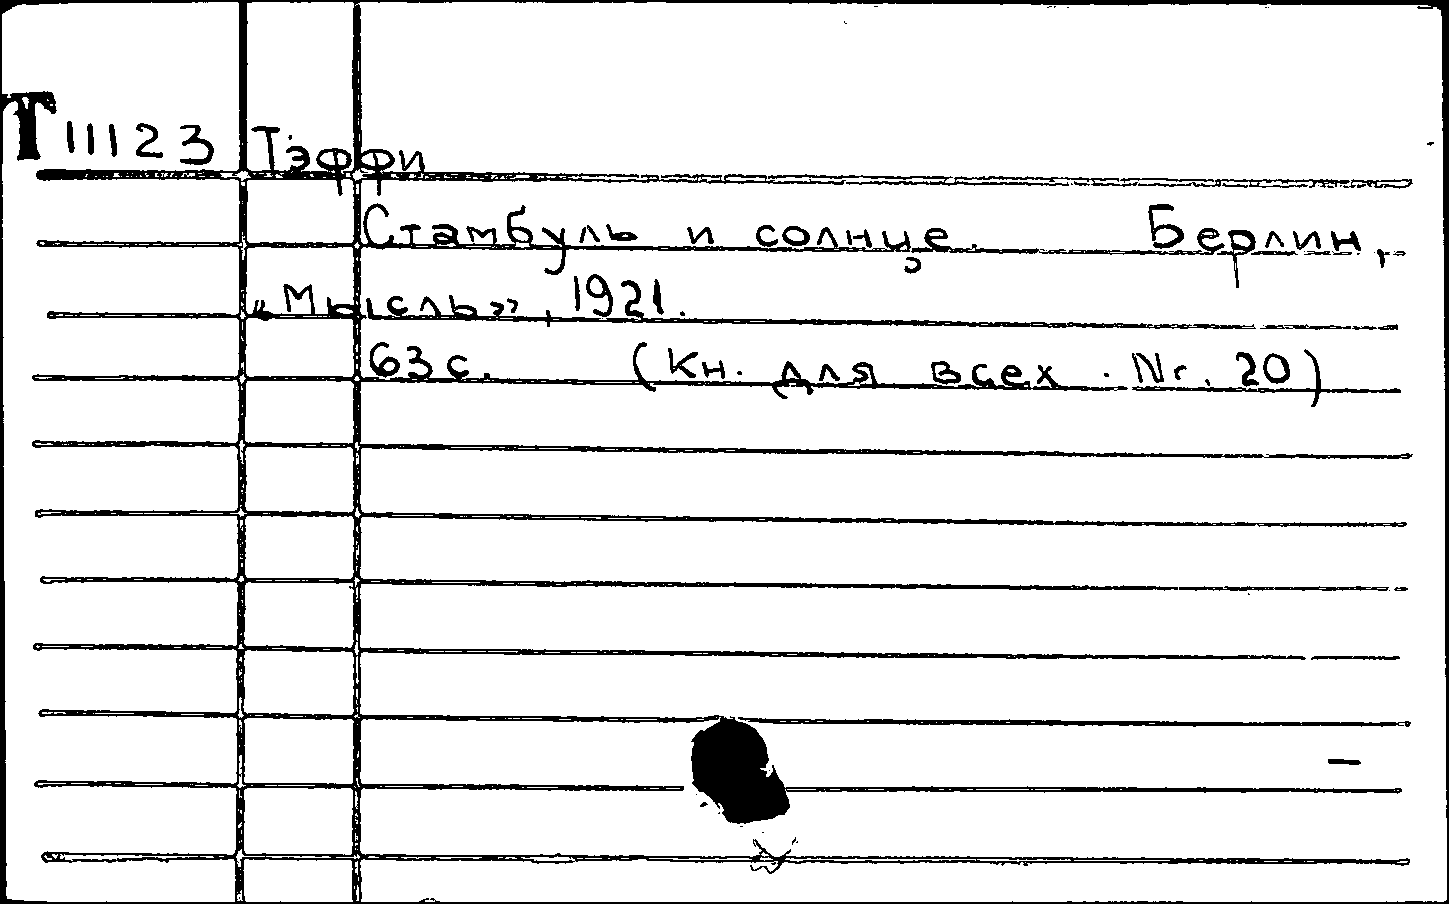 T 11123 Тэффи
Стамбуль и солнце. Берлин,
«Мысль», 1921.
63 с. (Кн. для всех. Nr. 20)